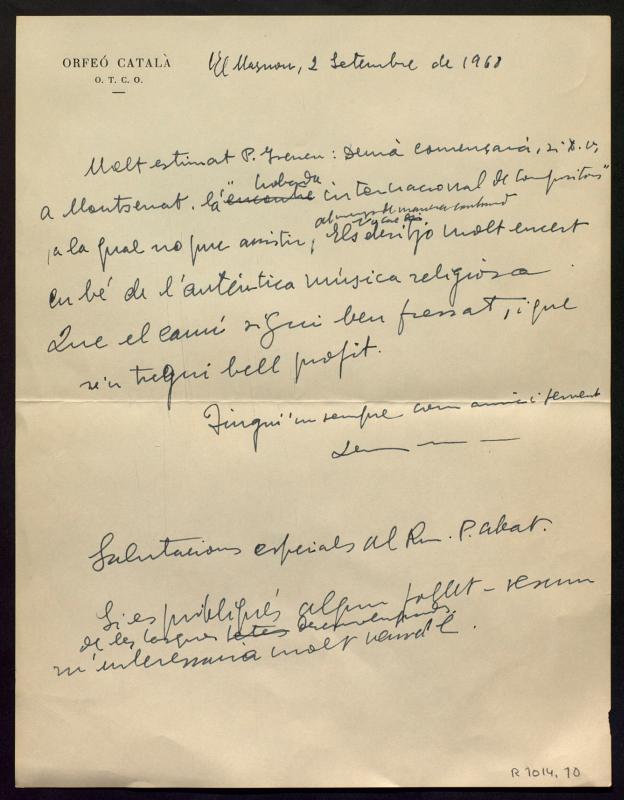 ORFEÓ CATALÀ
O. T. C. O.
El Masnou, 2 Setembre de 1968
Molt estimat P. : Demà començarà, si D. v.,
trobada
a Montserrat, la "encontre internacional de Compositors"
a la qual no puc assistir, Els desitjo molt encert
en bé de l'autèntica música religiosa.
Que el camí sigui ben fressat, i que
se'n tregui bell profit.
Tingui'm sempre com amic i servent
Salutacions especials al Rm. P. Abat.
Si es publiqués algun fullet-resum
de les tasques desenvolupades
m'interessaria molt
R 1014, 10